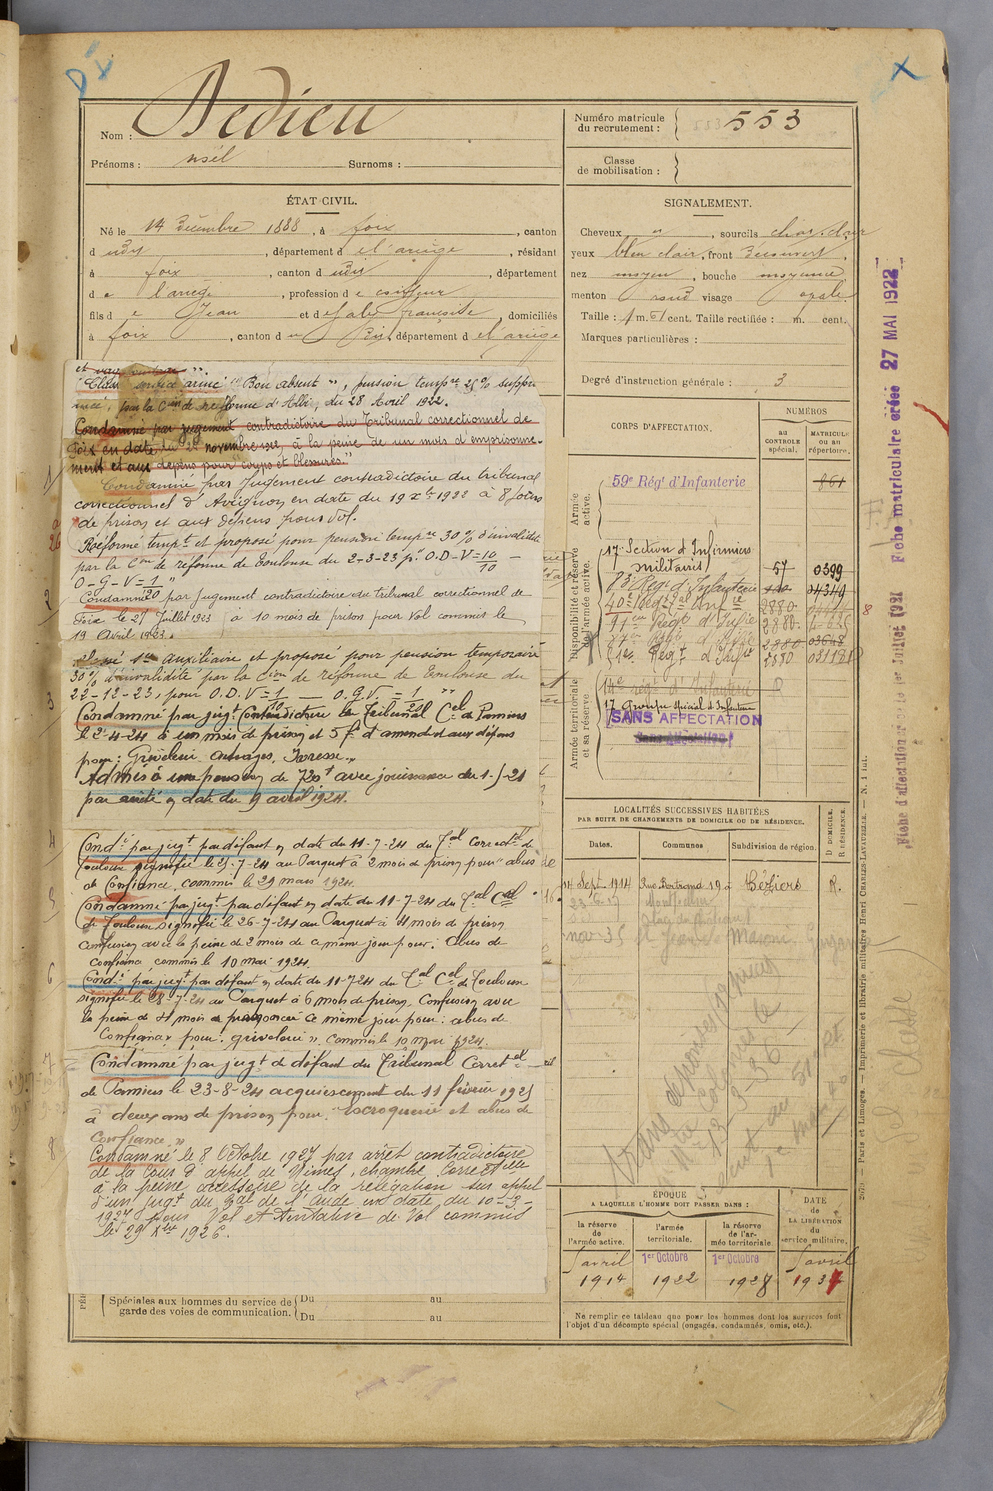 Dedieu
Nom :
Prénoms :
Surnoms :
Numéro matricule
du recrutement :
553
Classe
de mobilisation :
ÉTAT CIVIL.
Né le 14 Décembre 1888, à foix, canton
d udy, département d e l'ariège, résidant
à foix, canton d udy, département
d e l'ariège, profession d e coiffeur
fils d e Jean et d e Galy françoise, domiciliés
à foix, canton d u dit, département d e l'ariège
SIGNALEMENT.
Cheveux, sourcils chat. clair
yeux bleu clair, front découvert,
nez moyen, bouche moyenne
menton rond visage ovale
Taille : 1 m. 61 cent. Taille rectifiée : m. cent.
Marques particulières :
Degré d'instruction générale : 3
CORPS D'AFFECTATION.
NUMÉROS
au
CONTROLE
spécial.
MATRICULE
ou au
répertoire.
Armée
active.
59e Régt d'Infanterie
861
Disponibilité et réserve
de l'armée active.
17e Section d'Infirmiers
militaires
57 0399
83e Régt d'Infanterie 04349
2880
2880
2880
5880 03118
Armée territoriale
et sa réserve
14e régt d'Infanterie
17 groupe spécial d'Infanterie
SANS AFFECTATION
LOCALITÉS SUCCESSIVES HABITÉES
PAR SUITE DE CHANGEMENTS DE DOMICILE OU DE RÉSIDENCE.
Dates.
Communes
Subdivision de région.
D. DOMICILE.
R. RÉSIDENCE.
14 Sept. 1914 Rue Bertrand 19 à Béziers R.
ÉPOQUE
A LAQUELLE L'HOMME DOIT PASSER DANS :
la réserve
de
l'armée active.
l'armée
territoriale.
la réserve
de l'ar-
mée territoriale
DATE
de
LA LIBÉRATION
du
service militaire.
1 avril
1914
1er Octobre
1922
1er Octobre
1928
1 avril
1937
Ne remplir ce tableau que pour les hommes dont les services font
l'objet d'un décompte spécial (engagés, condamnés, omis, etc.).
Classé service armé "Bon absent", pension tempre 25% suppri
mée, par la Con de réforme d'Albi, du 28 Avril 1922.
Condamné par jugement contradictoire du Tribunal correctionnel de
Foix en date du 28 novembre 1912, à la peine de un mois d'emprisonne-
ment et aux dépens pour "coups et blessures."
Condamné par Jugement contradictoire du tribunal
correctionnel d'Avignon en date du 19 Xbre 1922 à 8 jours
de prison et aux dépens pour Vol.
Réformé tempt et proposé pour pension tempre 30% d'invalidité
par la Con de réforme de Toulouse du 2-3-23 pr O-D-V=10/10 -
O-G-V=1/20"
Condamné par jugement contradictoire du tribunal correctionnel de
Foix le 21 Juillet 1923 à 10 mois de prison pour Vol commis le
19 Avril 1923.
Classé 1er auxiliaire et proposé pour pension temporaire
30% d'invalidité par la Cion de réforme de Toulouse du
22-12-23, pour O.D.V=1/10 — O.G.V.=1/20"
Condamné par jugt Contradictoire le Tribunal Cel de Pamiers
le 2-4-24 à un mois de prison et 5f d'amende et aux dépens
pour : Grivèlerie, outrages, Ivresse.
Admis à une pension de 720f avec jouissance du 1-5-21
par arrêté en date du 9 avril 1924.
Condé par jugt par défaut en date du 11-7-24 du Tal Correctel de
Toulouse signifié le 25-7-24 au Parquet à 2 mois de prison pour "abus
de Confiance, commis le 29 mars 1924.
Condamné par jugt par défaut en date du 11-7-24 du Tal Cel
de Toulouse signifié le 26-7-24 au Parquet à 4 mois de prison
confusion avec la peine de 2 mois de ce même jour pour : abus de
Confiance commis le 10 mai 1924.
Condé par jugt par défaut en date du 11-7-24 du Tal Cel de Toulouse
signifié le 28-7-24 au Parquet à 6 mois de prison, Confusion avec
la peine de 4 mois prononcée ce même jour pour : abus de
Confiance pour : grivèlerie, Commis le 10 mai 1924.
Condamné par jugt d défaut du Tribunal Correctel
de Pamiers le 23-8-24 acquiescement du 11 février 1925
à deux ans de prison pour "Escroquerie et abus de
Confiance."
Condamné le 8 Octobre 1927 par arrêt contradictoire
de la Cour d'appel de Nîmes, chambre correctelle
à la peine accessoire de la relégation sur appel
d'un jugt du Bal de l'Aude en date du 10-3-
1927 pour Vol et tentative de Vol commis
le 29 Xbre 1926.
Spéciales aux hommes du service de
garde des voies de communication.
Du au
Du au
Fiche matriculaire créée 27 MAI 1922
Paris et Limoges. — Imprimerie et librairie militaires Henri CHARLES-LAVAUZELLE.